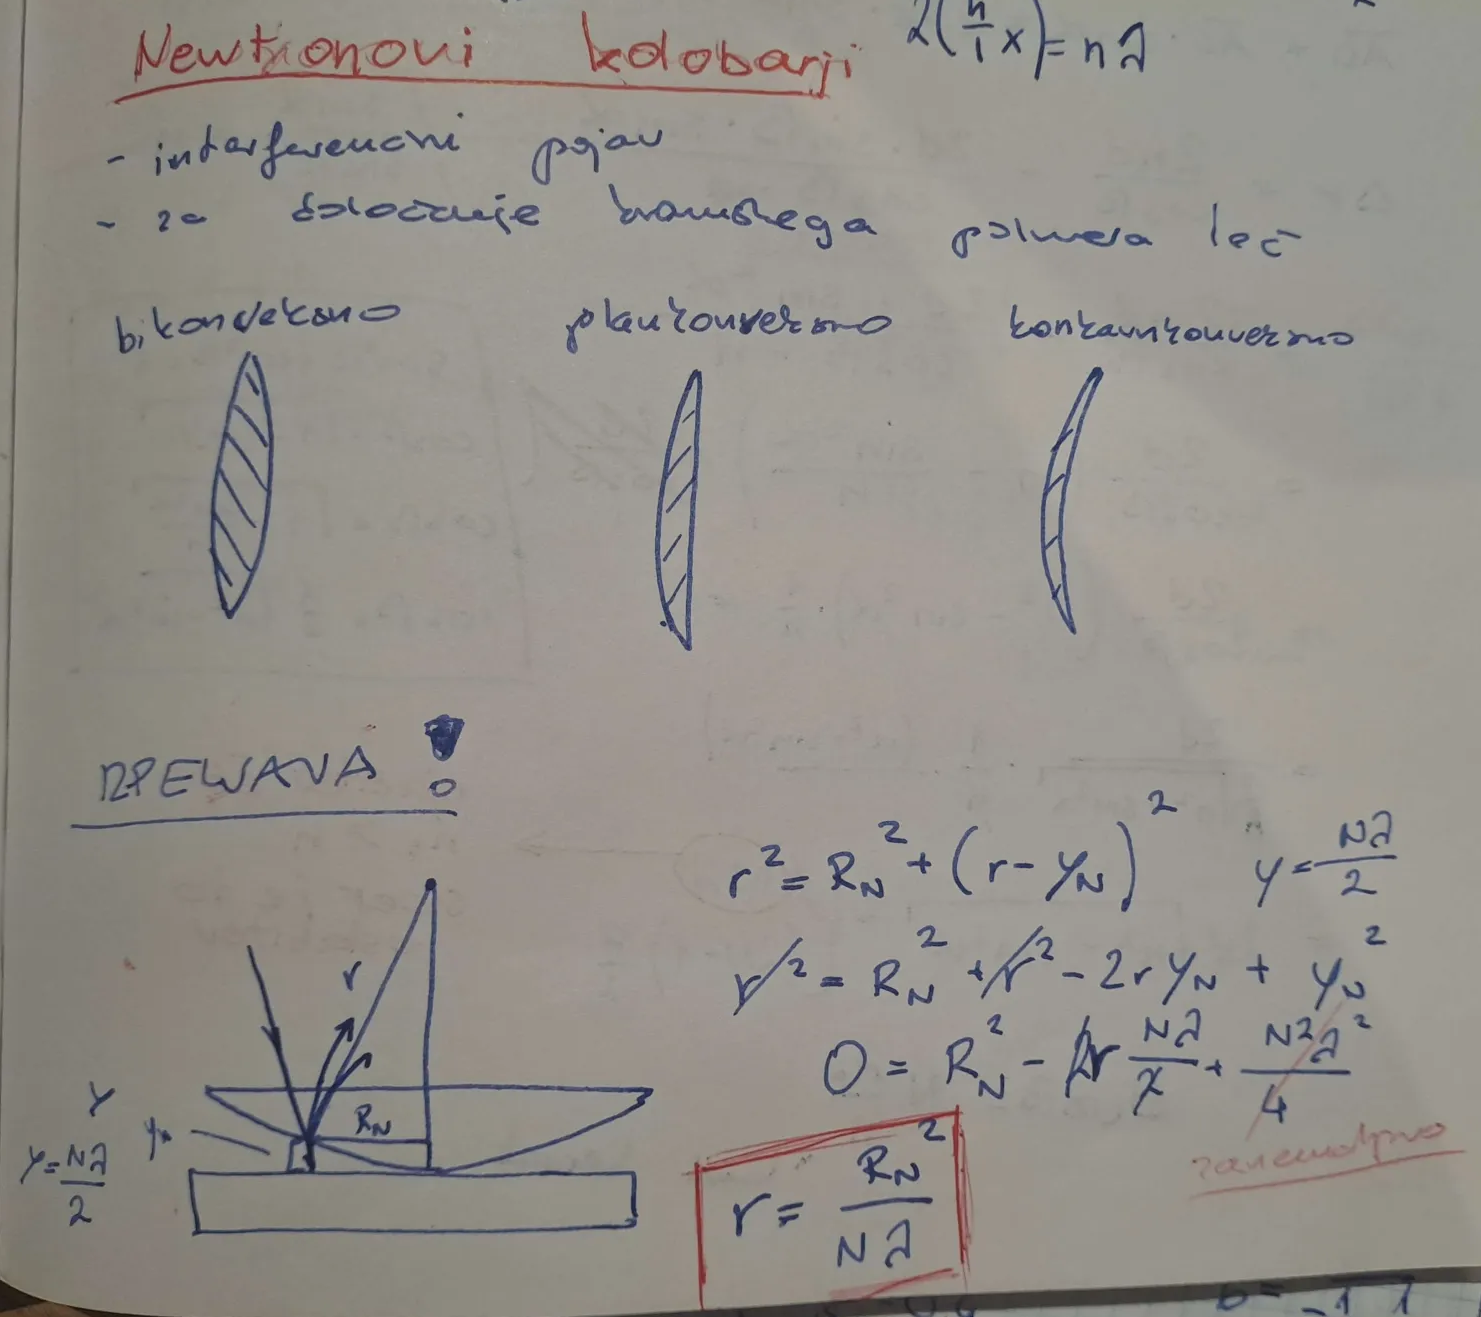 2(n/1 x) = nλ
Newtonovi kolobarji
- interferenčni pojav
- za določanje krivinskega polmera leč
bikonveksno plankonveksno konkavnkonveksno
IZPELJAVA !
r² = R_N² + (r - y_N)² y = Nλ/2
r² = R_N² + r² - 2r y_N + y_N²
0 = R_N² - 2r Nλ/2 + N²λ²/4
zanemarljivo
r = R_N²/Nλ
r
R_N
y
y_N
y = Nλ/2